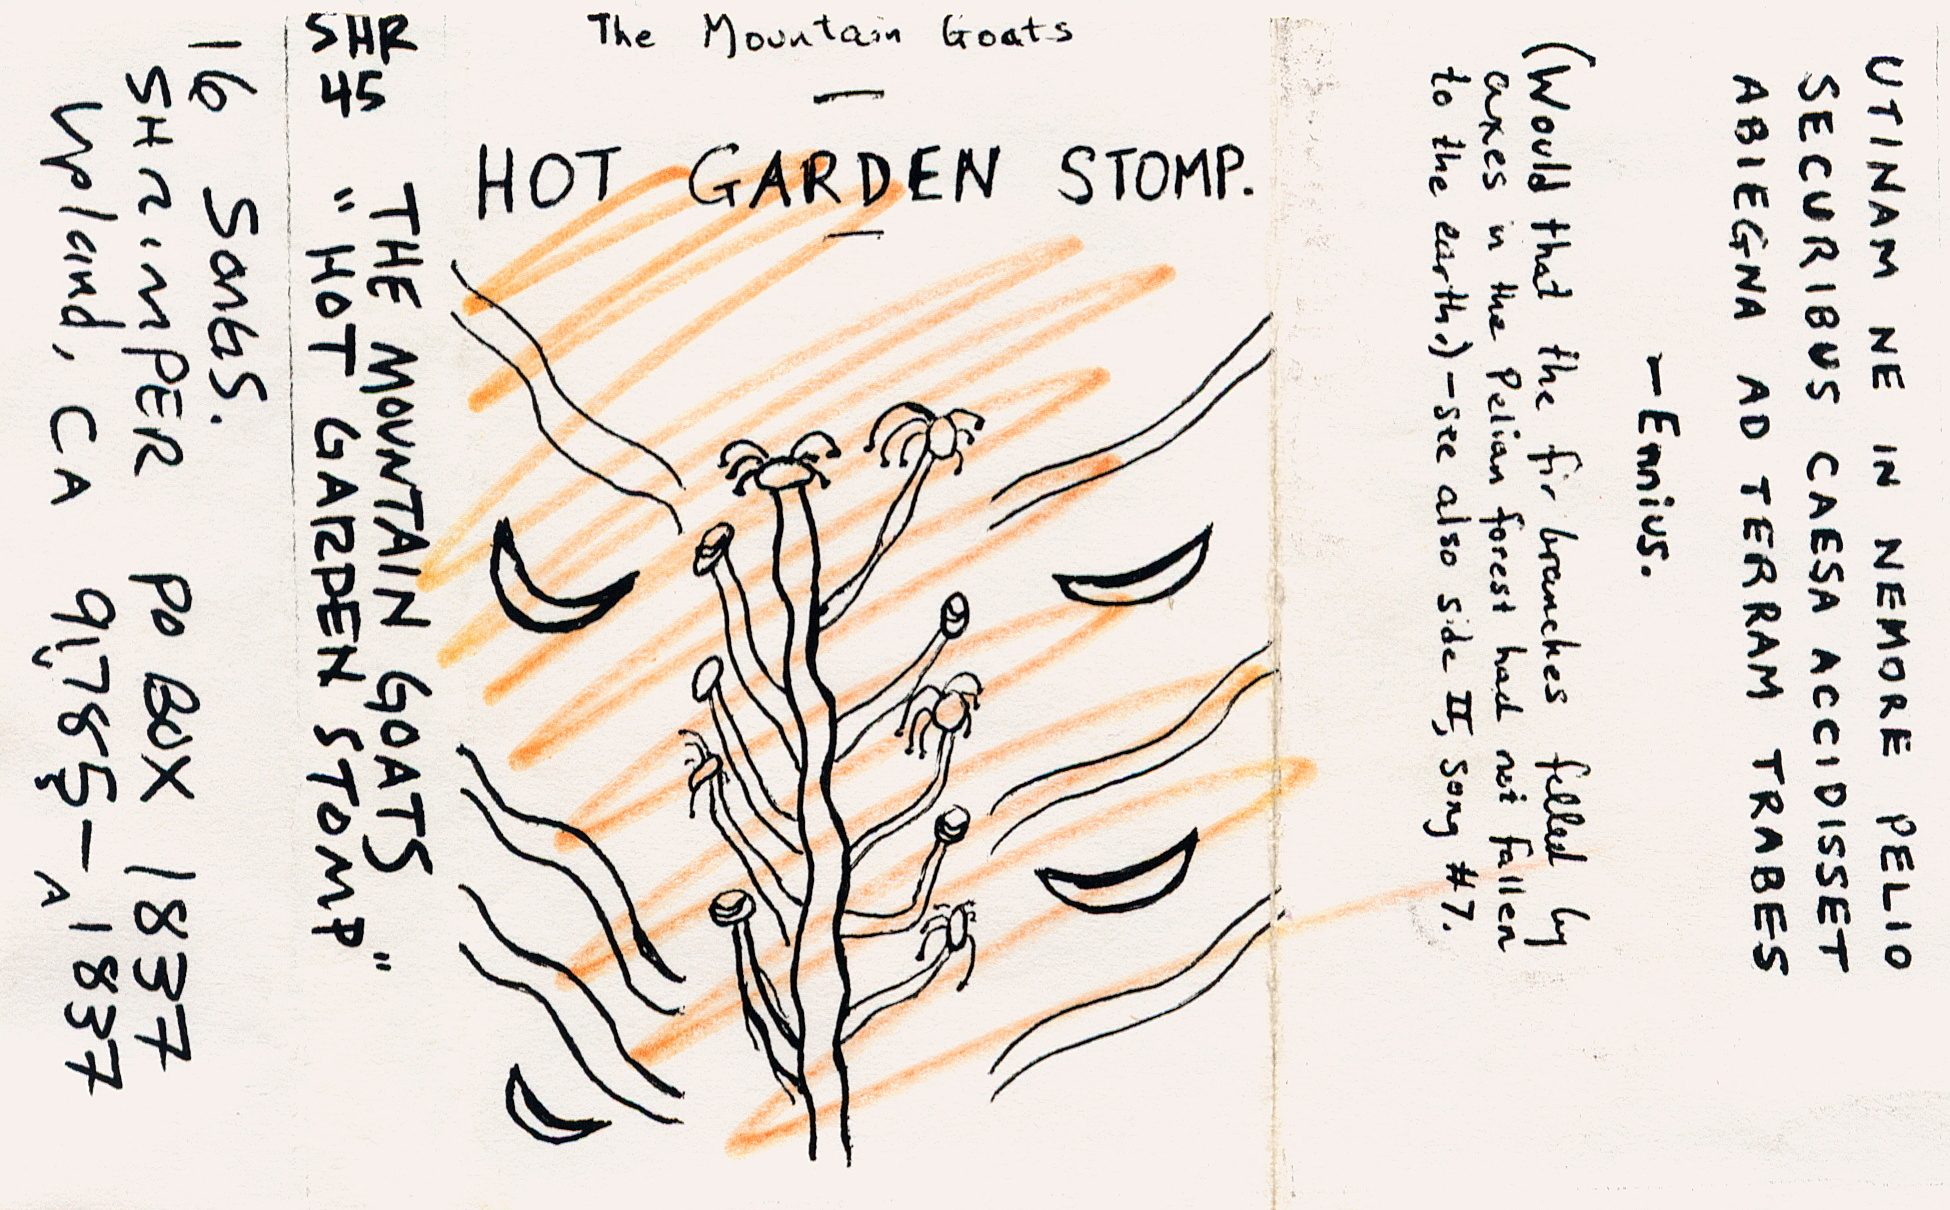 16 SONGS.
SHRIMPER PO BOX 1837
Upland, CA 91785-1837
SHR
45
THE MOUNTAIN GOATS
"HOT GARDEN STOMP"
The Mountain Goats
—
HOT GARDEN STOMP.
—
UTINAM NE IN NEMORE PELIO
SECURIBUS CAESA ACCIDISSET
ABIEGNA AD TERRAM TRABES
—Ennius.
(Would that the fir branches felled by
axes in the Pelian forest had not fallen
to the earth.)-see also side II, song #7.